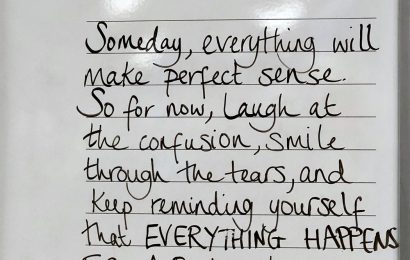 Someday, everything will
make perfect sense.
So for now, Laugh at
the confusion, smile
through the tears, and
Keep reminding yourself
that EVERYTHING HAPPENS